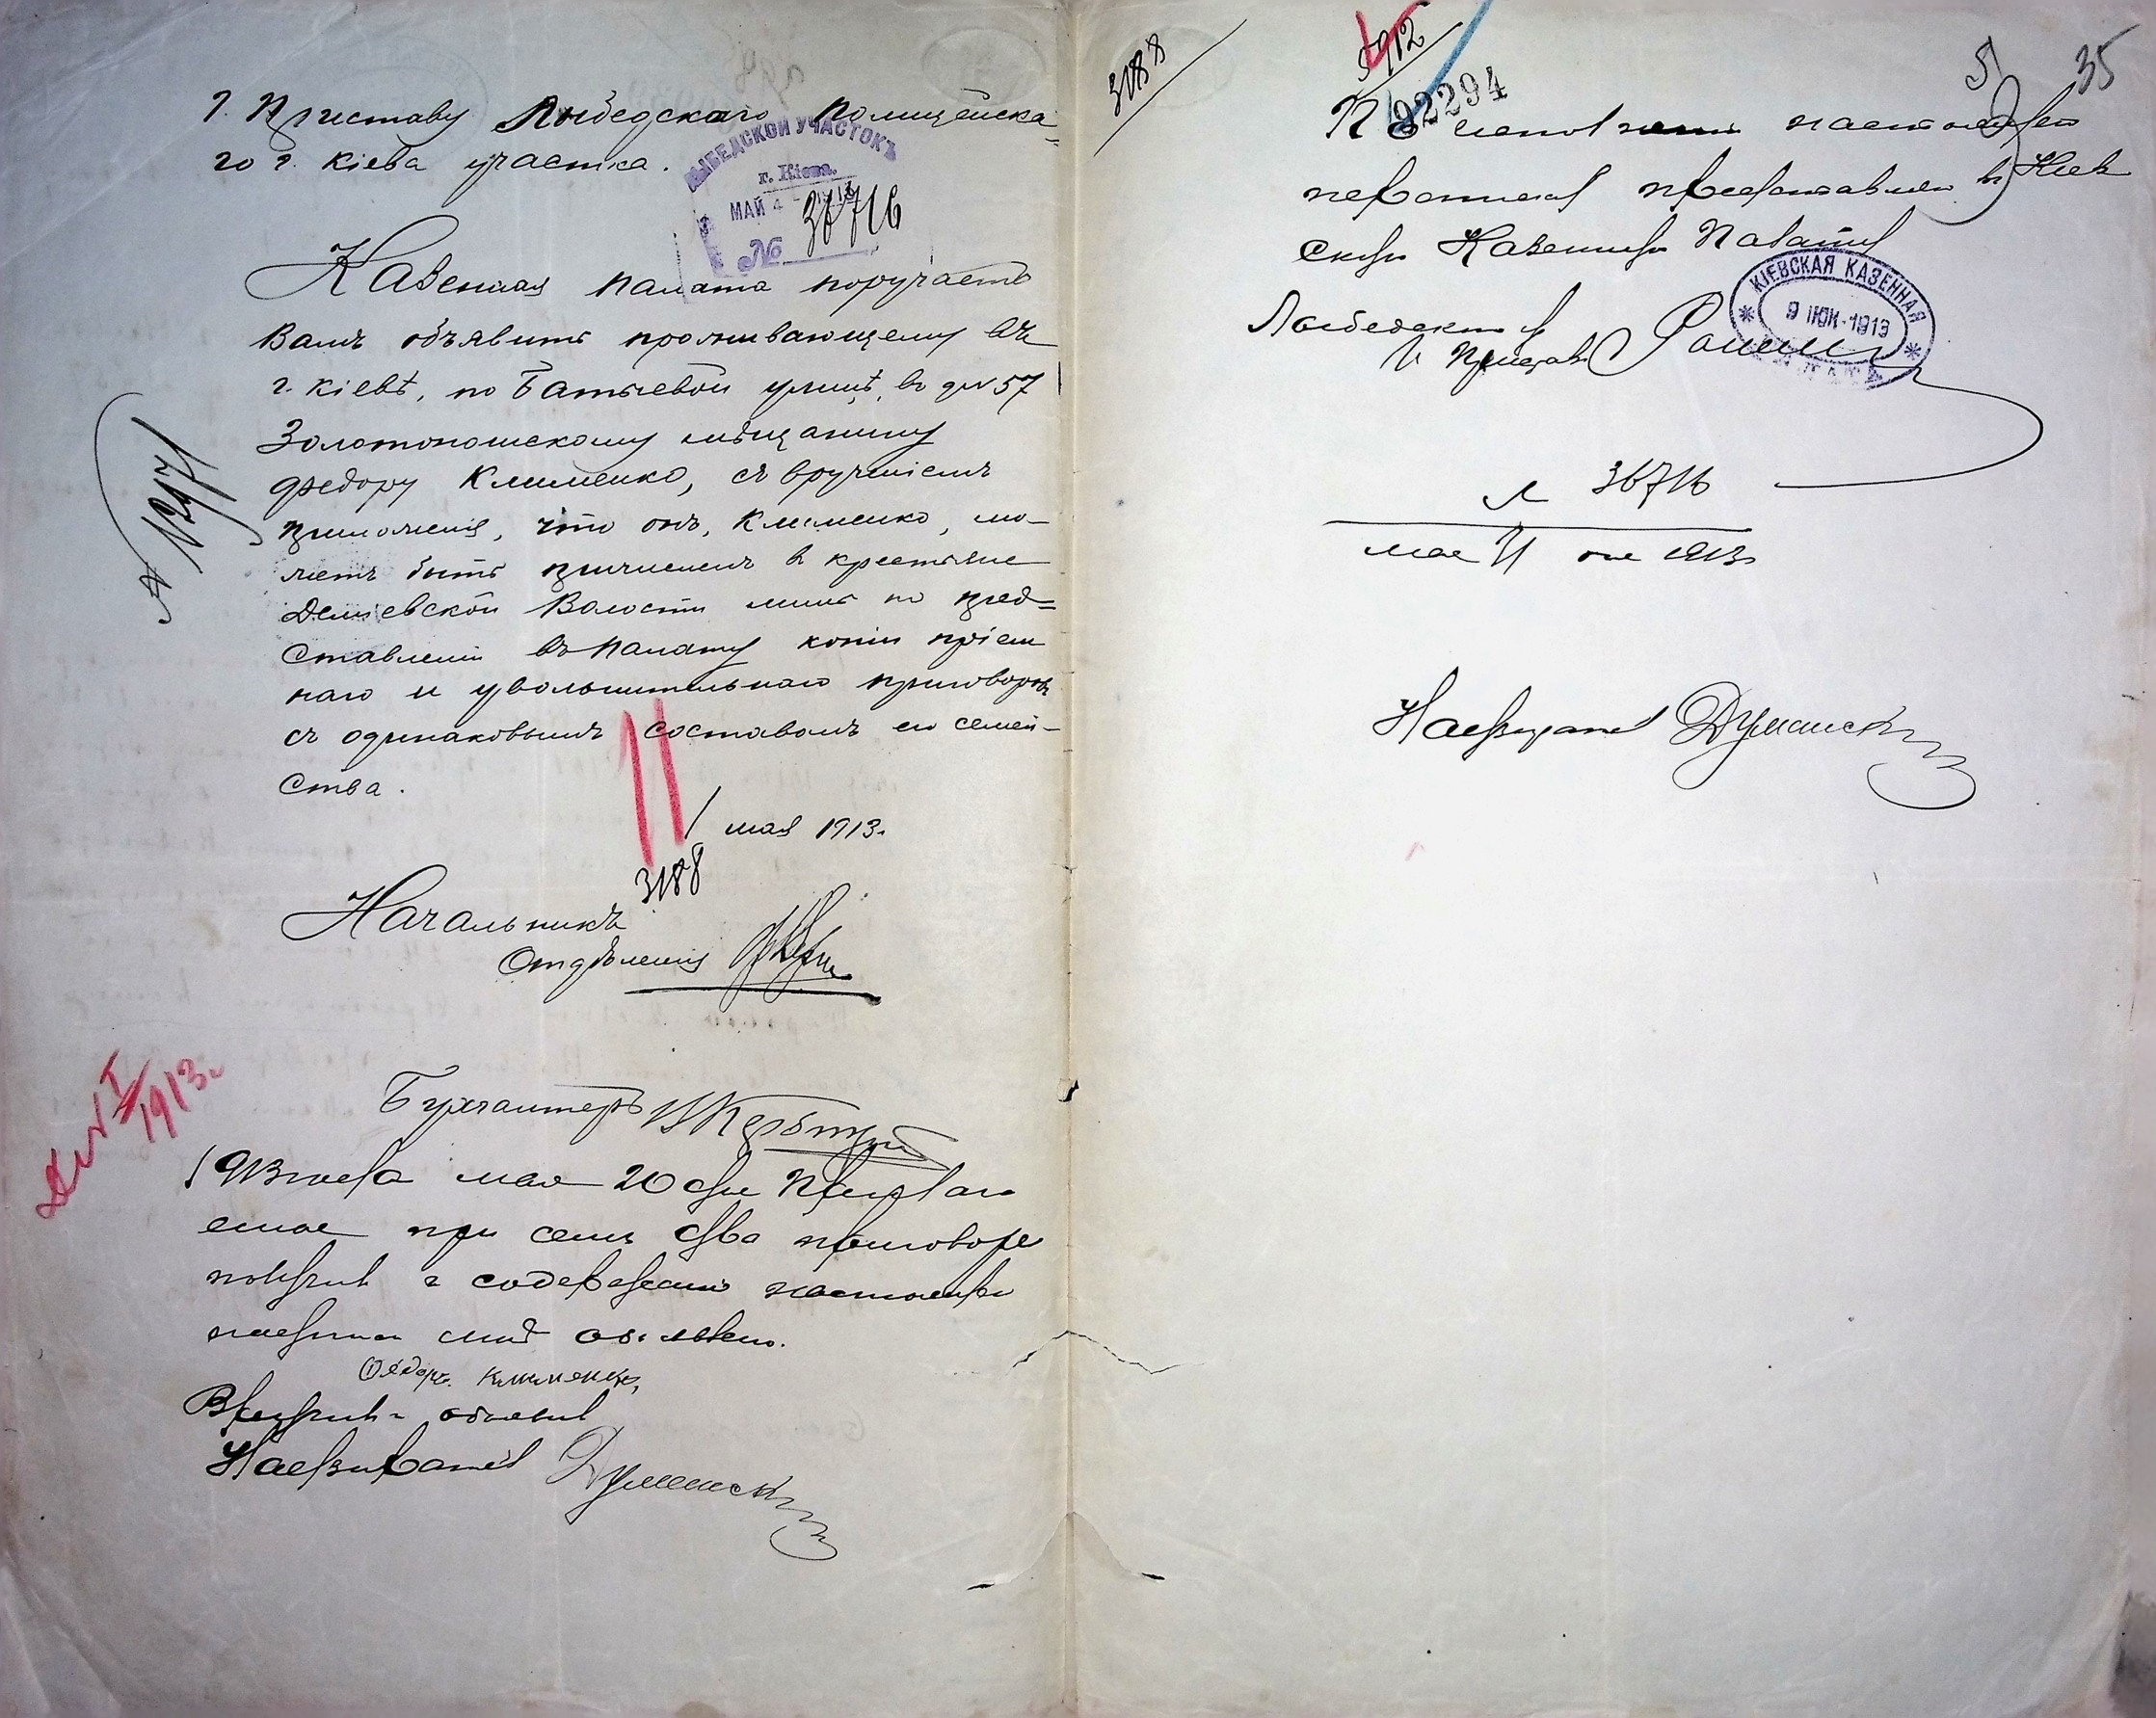 Г. Приставу Лыбедскаго Полицейска=
го г. Кіева участка.
ЛЫБЕДСКОЙ УЧАСТОКЪ
г. Кіева.
МАЙ 4 1913
№ 36716
Казенная палата поручаетъ
Вамъ объявить проживающему въ
г. Кіевѣ, по Батыевой улицѣ, въ д № 57
Золотоношскому мѣщанину
Федору Клименко, съ врученіемъ
приложенія, что онъ, Клименко, мо-
жетъ быть причисленъ въ крестьяне
Волости лишь по пред=
ставленіи въ палату копіи пріем
наго и увольнительнаго приговоровъ
съ одинаковымъ составомъ его семей-
ства.
1 мая 1913.
3188
Начальникъ
Отдѣленія
Бухгалтеръ
1913 года мая 20 дня
при семъ два приговора
получилъ и содержаніе настоящей
мнѣ объявлено.
Федоръ Клименко
Вручилъ и объявилъ
Надзиратель Думанск
1913.
3188
5912
92294
5
35
По исполненіи настоящая
переписка представлена въ Кіев
скую Казенную Палату
КІЕВСКАЯ КАЗЕННАЯ
9 ІЮН 1913
ПАЛАТА
Лыбедской
Приставъ
№ 36716
мая 21 дня 1913
Надзиратель Думанск